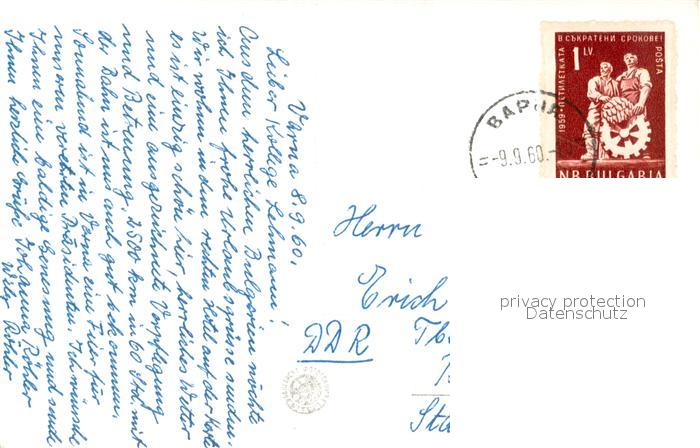 Varna 8.9.60.
Lieber Kollege Lehmann!
Aus dem herrlichen Bulgarien möchte
ich Ihnen frohe Urlaubsgrüsse senden.
Wir wohnen in dem Hotel auf der
es ist einzig schön hier, herrliches Wetter
und eine ausgezeichnete Verpflegung
und Betreuung. 2500 km in 60 Std. mit
der Bahn ist uns auch gut bekommen.
Sonnabend ist in Varna eine Feier für
unseren verehrten Präsidenten. Ich wünsche
Ihnen eine baldige Genesung und sende
Ihnen herzliche Grüße Johanna Röhler
Willy Röhler
Herrn
Erich
DDR
1959 · ПЕТИЛЕТКАТА
В СЪКРАТЕНИ СРОКОВЕ!
1 LV.
POŠTA
NR BULGARIA
ВАРНА
-9.9.60.-
privacy protection
Datenschutz